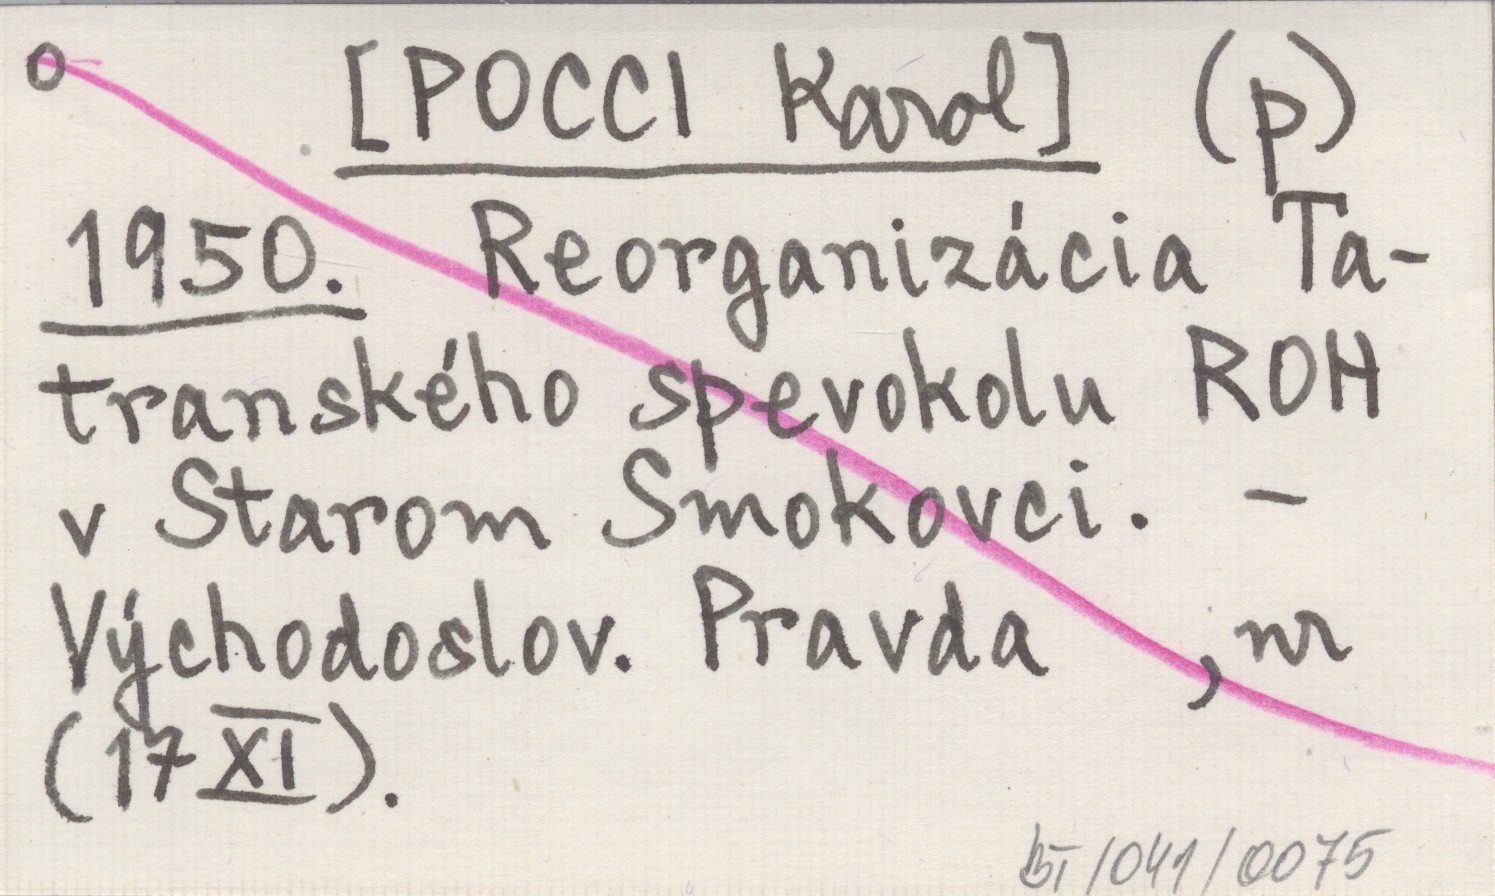 o [POCCI Karol] (p)
1950. Reorganizácia Ta-
tranského spevokolu ROH
v Starom Smokovci. -
Východoslov. Pravda , nr
(17 XI).
BT/041/0075